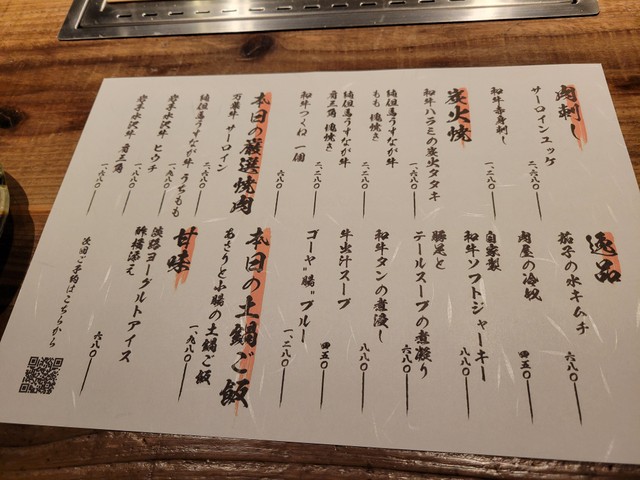 肉刺し
サーロインユッケ
二、六八〇
和牛赤身刺し
一、二八〇
炭火焼
和牛ハラミの炭火タタキ
一、六八〇
もも 塊焼き
二、二八〇
肩三角 塊焼き
二、二八〇
和牛つくね 一個
三八〇
本日の厳選焼肉
万葉牛 サーロイン
二、六八〇
うちもも
一、六八〇
岩手水沢牛 ヒウチ
一、九八〇
岩手水沢牛 肩三角
一、六八〇
逸品
茄子の水キムチ
六八〇
肉屋の冷奴
四五〇
自家製
和牛ソフトジャーキー
八八〇
豚足と
テールスープの煮凝り
六八〇
和牛タンの煮浸し
八八〇
牛出汁スープ
四五〇
ゴーヤ"腸"プルー
一、二八〇
本日の土鍋ご飯
あさりと小腸の土鍋ご飯
一、九八〇
甘味
淡路ヨーグルトアイス
酢橘添え
六八〇
次回ご予約はこちらから